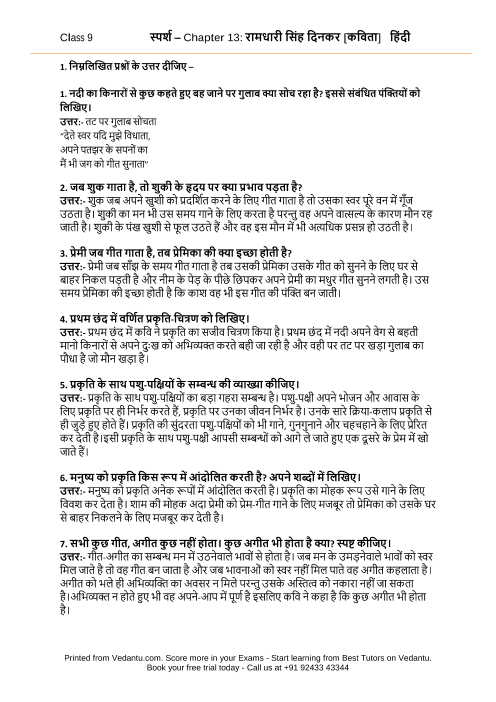 Class 9 स्पर्श – Chapter 13: रामधारी सिंह दिनकर [कविता] हिंदी
1. निम्नलिखित प्रश्नों के उत्तर दीजिए –
1. नदी का किनारों से कुछ कहते हुए बह जाने पर गुलाब क्या सोच रहा है? इससे संबंधित पंक्तियों को
लिखिए।
उत्तर:- तट पर गुलाब सोचता
“देते स्वर यदि मुझे विधाता,
अपने पतझर के सपनों का
मैं भी जग को गीत सुनाता”
2. जब शुक गाता है, तो शुकी के हृदय पर क्या प्रभाव पड़ता है?
उत्तर:- शुक जब अपने खुशी को प्रदर्शित करने के लिए गीत गाता है तो उसका स्वर पूरे वन में गूँज
उठता है। शुकी का मन भी उस समय गाने के लिए करता है परन्तु वह अपने वात्सल्य के कारण मौन रह
जाती है। शुकी के पंख खुशी से फूल उठते हैं और वह इस मौन में भी अत्यधिक प्रसन्न हो उठती है।
3. प्रेमी जब गीत गाता है, तब प्रेमिका की क्या इच्छा होती है?
उत्तर:- प्रेमी जब साँझ के समय गीत गाता है तब उसकी प्रेमिका उसके गीत को सुनने के लिए घर से
बाहर निकल पड़ती है और नीम के पेड़ के पीछे छिपकर अपने प्रेमी का मधुर गीत सुनने लगती है। उस
समय प्रेमिका की इच्छा होती है कि काश वह भी इस गीत की पंक्ति बन जाती।
4. प्रथम छंद में वर्णित प्रकृति-चित्रण को लिखिए।
उत्तर:- प्रथम छंद में कवि ने प्रकृति का सजीव चित्रण किया है। प्रथम छंद में नदी अपने वेग से बहती
मानो किनारों से अपने दुःख को अभिव्यक्त करते बही जा रही है और वही पर तट पर खड़ा गुलाब का
पौधा है जो मौन खड़ा है।
5. प्रकृति के साथ पशु-पक्षियों के सम्बन्ध की व्याख्या कीजिए।
उत्तर:- प्रकृति के साथ पशु-पक्षियों का बड़ा गहरा सम्बन्ध है। पशु-पक्षी अपने भोजन और आवास के
लिए प्रकृति पर ही निर्भर करते हैं, प्रकृति पर उनका जीवन निर्भर है। उनके सारे क्रिया-कलाप प्रकृति से
ही जुड़े हुए होते हैं। प्रकृति की सुंदरता पशु-पक्षियों को भी गाने, गुनगुनाने और चहचहाने के लिए प्रेरित
कर देती है।इसी प्रकृति के साथ पशु-पक्षी आपसी सम्बन्धों को आगे ले जाते हुए एक दूसरे के प्रेम में खो
जाते हैं।
6. मनुष्य को प्रकृति किस रूप में आंदोलित करती है? अपने शब्दों में लिखिए।
उत्तर:- मनुष्य को प्रकृति अनेक रूपों में आंदोलित करती है। प्रकृति का मोहक रूप उसे गाने के लिए
विवश कर देता है। शाम की मोहक अदा प्रेमी को प्रेम-गीत गाने के लिए मजबूर तो प्रेमिका को उसके घर
से बाहर निकलने के लिए मजबूर कर देती है।
7. सभी कुछ गीत, अगीत कुछ नहीं होता। कुछ अगीत भी होता है क्या? स्पष्ट कीजिए।
उत्तर:- गीत-अगीत का सम्बन्ध मन में उठनेवाले भावों से होता है। जब मन के उमड़नेवाले भावों को स्वर
मिल जाते है तो वह गीत बन जाता है और जब भावनाओं को स्वर नहीं मिल पाते वह अगीत कहलाता है।
अगीत को भले ही अभिव्यक्ति का अवसर न मिले परन्तु उसके अस्तित्व को नकारा नहीं जा सकता
है।अभिव्यक्त न होते हुए भी वह अपने-आप में पूर्ण है इसलिए कवि ने कहा है कि कुछ अगीत भी होता
है।
Printed from Vedantu.com. Score more in your Exams - Start learning from Best Tutors on Vedantu.
Book your free trial today - Call us at +91 92433 43344